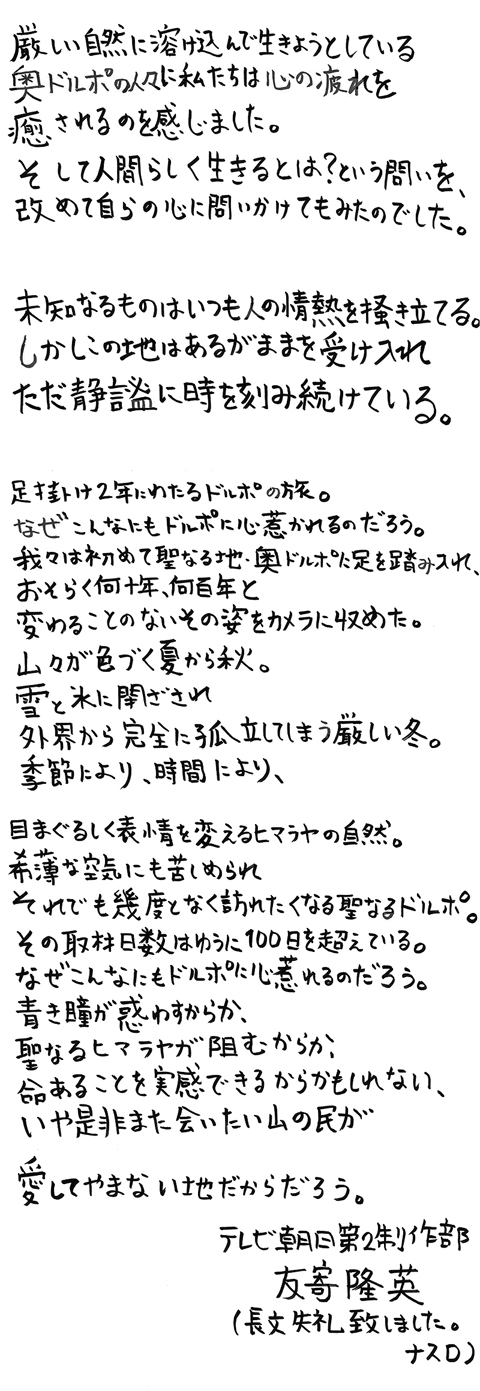 厳しい自然に溶け込んで生きようとしている
奥ドルポの人々に私たちは心の疲れを
癒されるのを感じました。
そして人間らしく生きるとは？という問いを、
改めて自らの心に問いかけてもみたのでした。
未知なるものはいつも人の情熱を掻き立てる。
しかしこの地はあるがままを受け入れ
ただ静謐に時を刻み続けている。
足掛け2年にわたるドルポの旅。
なぜこんなにもドルポに心惹かれるのだろう。
我々は初めて聖なる地・奥ドルポに足を踏み入れ、
おそらく何十年、何百年と
変わることのないその姿をカメラに収めた。
山々が色づく夏から秋。
雪と氷に閉ざされ
外界から完全に孤立してしまう厳しい冬。
季節により、時間により、
目まぐるしく表情を変えるヒマラヤの自然。
希薄な空気にも苦しめられ
それでも幾度となく訪れたくなる聖なるドルポ。
その取材日数はゆうに100日を超えている。
なぜこんなにもドルポに心惹れるのだろう。
青き瞳が惑わすからか、
聖なるヒマラヤが阻むからか、
命あることを実感できるからかもしれない、
いや是非また会いたい山の民が
愛してやまない地だからだろう。
テレビ朝日第2制作部
友寄隆英
（長文失礼致しました。
ナスD）